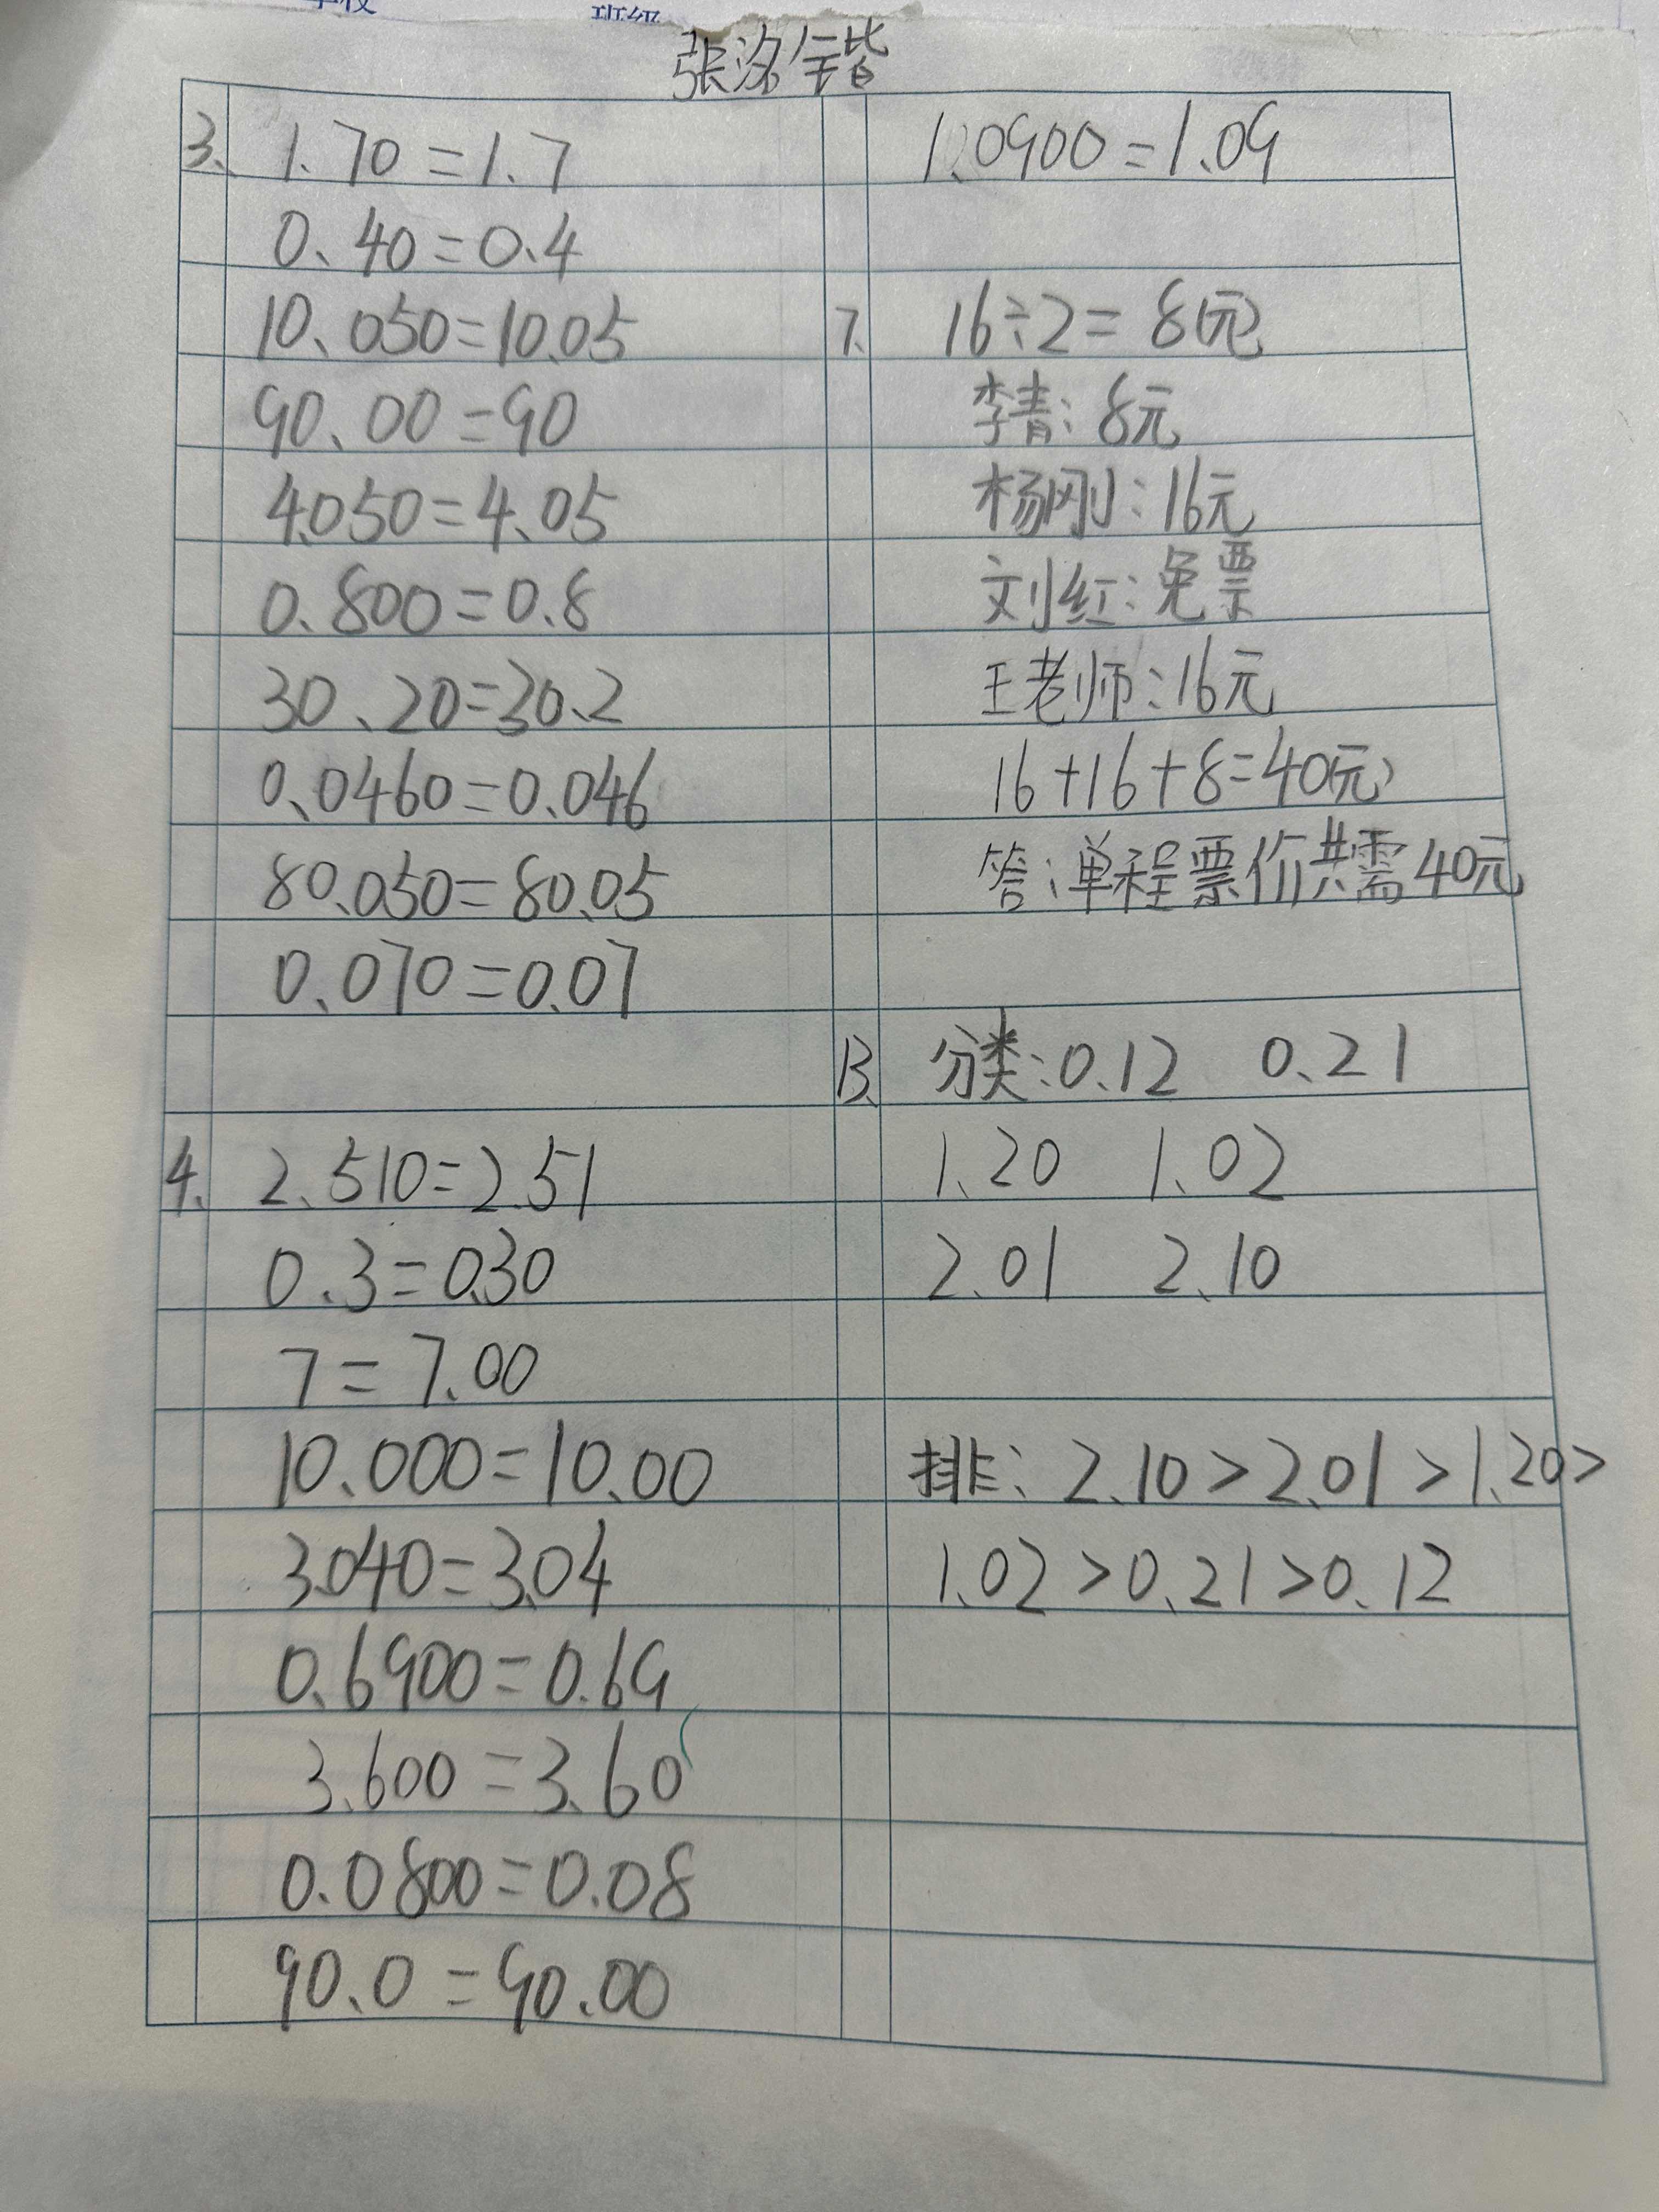 张洛
3. 1.70=1.7
0.40=0.4
10.050=10.05
90.00=90
4.050=4.05
0.800=0.8
30.20=30.2
0.0460=0.046
80.050=80.05
0.070=0.07
4. 2.510=2.51
0.3=0.30
7=7.00
10.000=10.00
3.040=3.04
0.6900=0.69
3.600=3.60
0.0800=0.08
90.0=90.00
1.0900=1.09
7. 16÷2=8(元)
李青:8元
杨刚:16元
刘红:免票
王老师:16元
16+16+8=40(元)
答:单程票价共需40元
13. 分类:0.12 0.21
1.20 1.02
2.01 2.10
排:2.10>2.01>1.20>
1.02>0.21>0.12